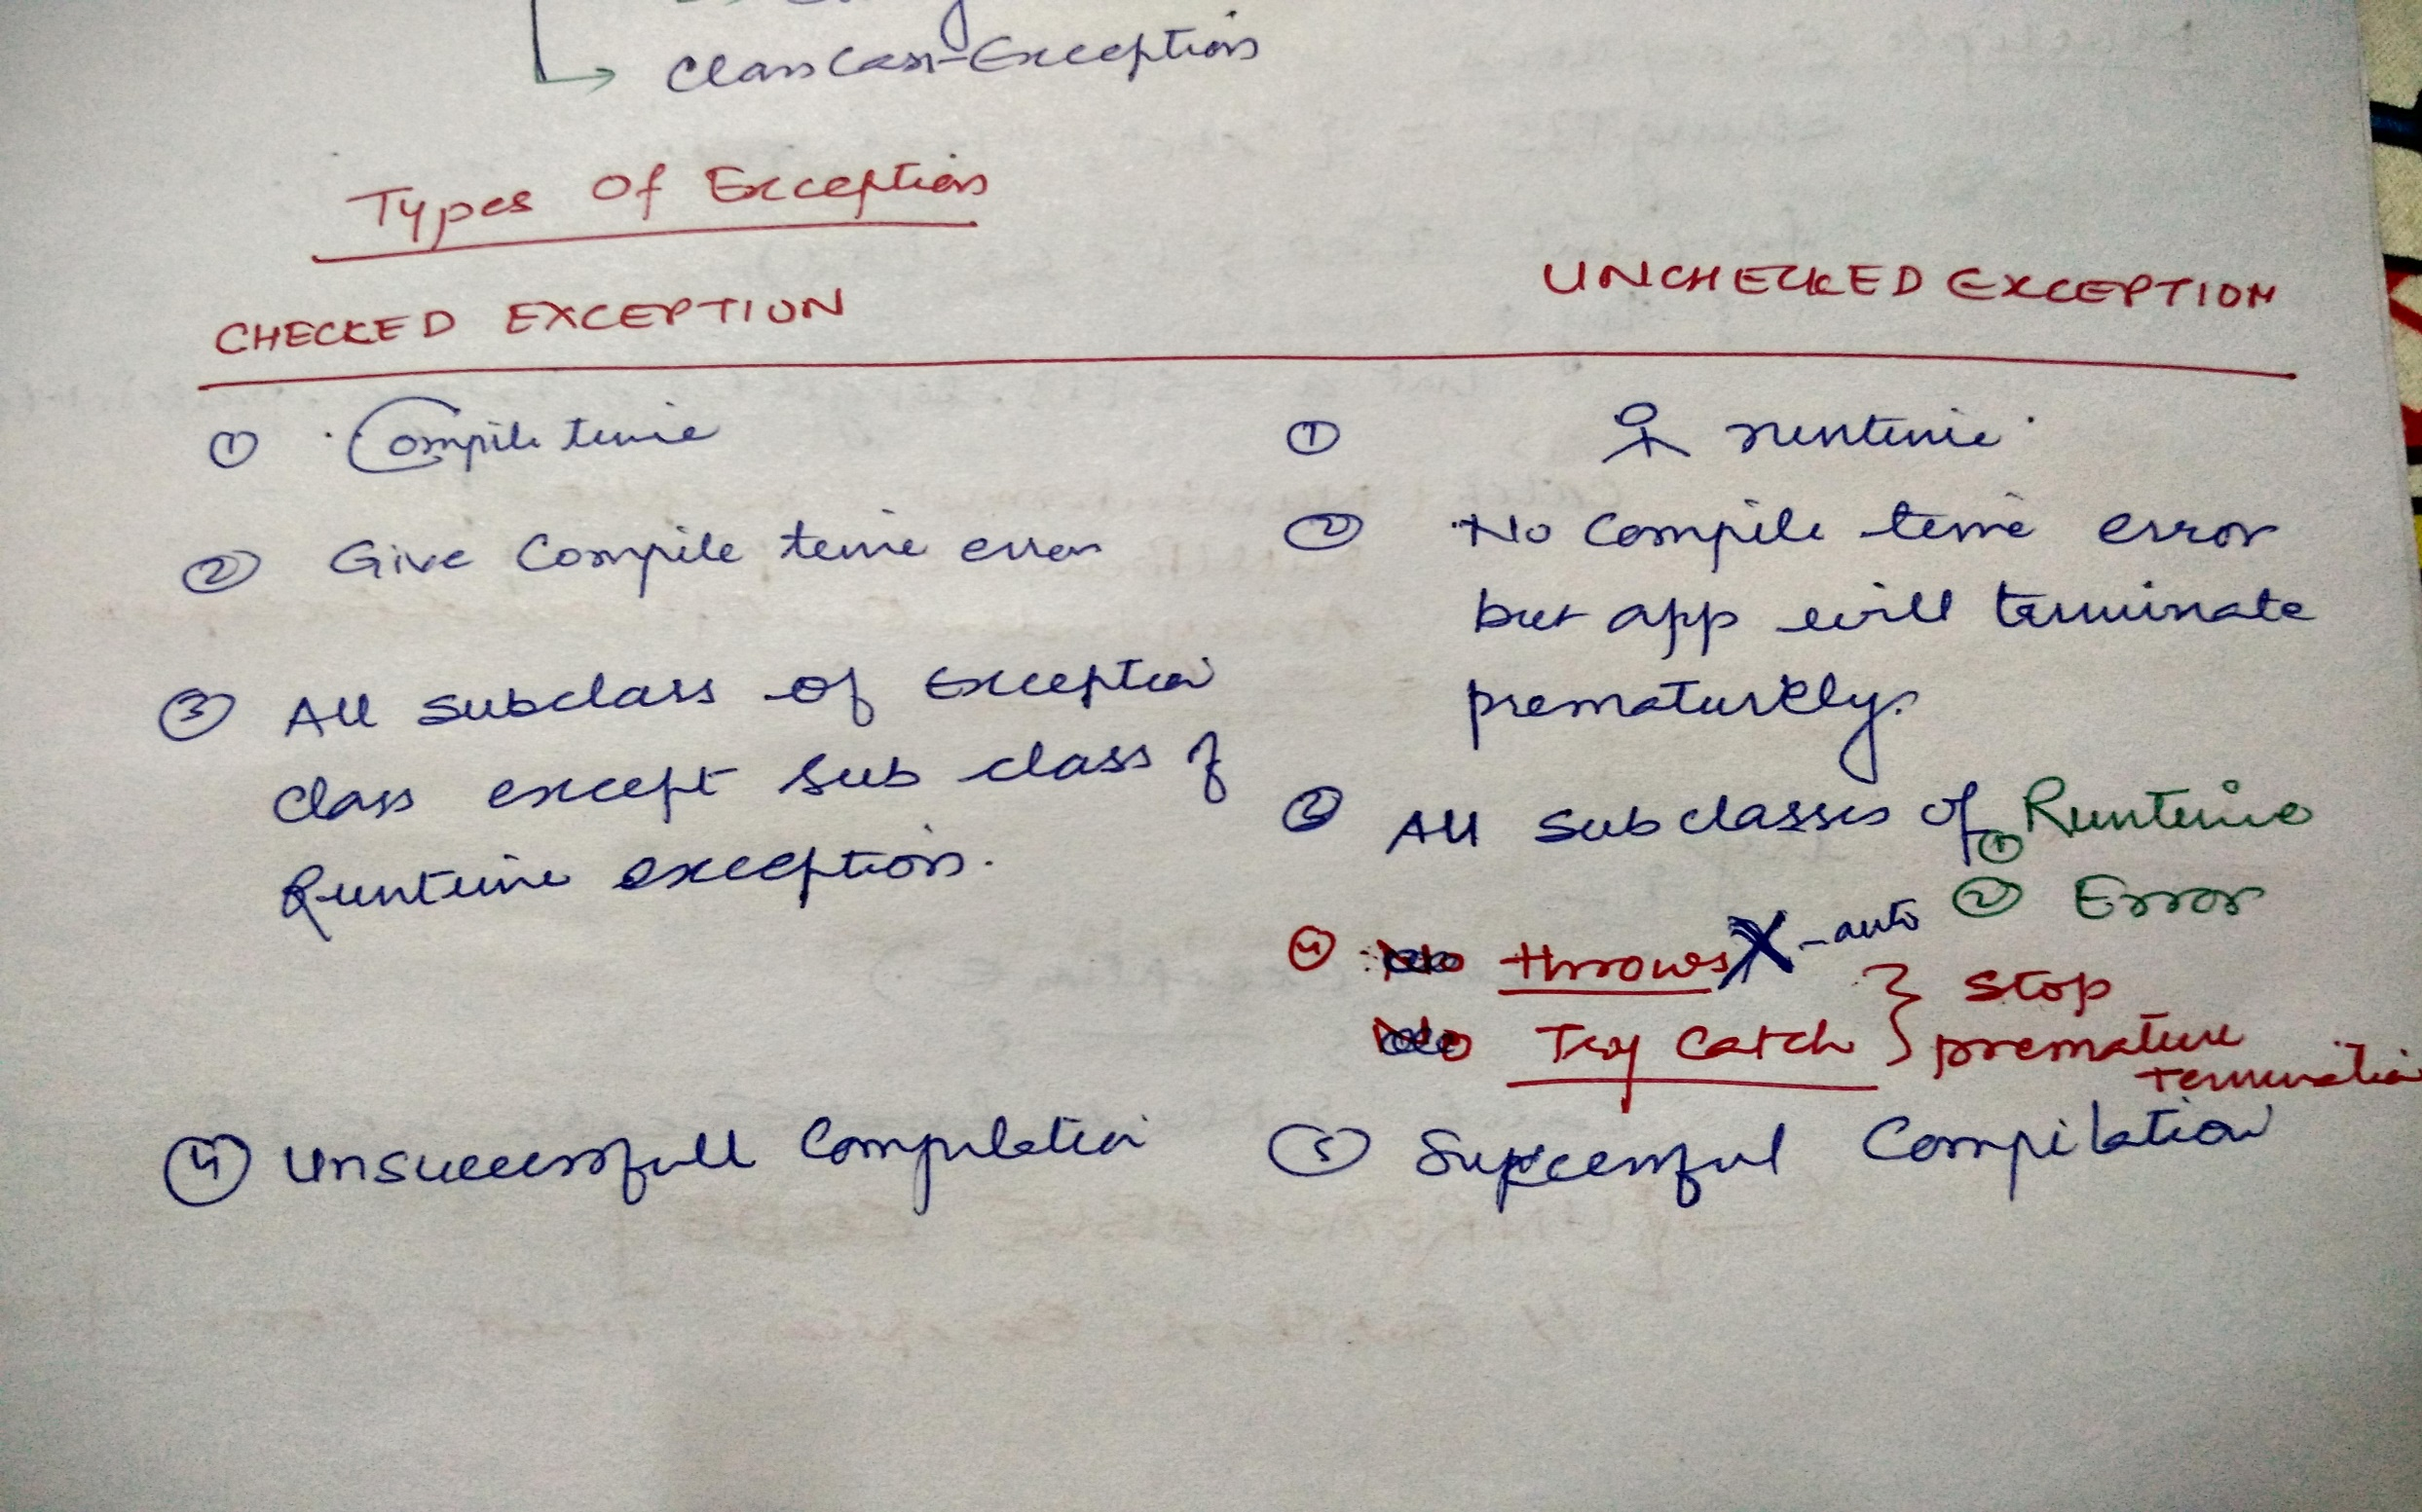 ClassCast-Exception
Types Of Exception
CHECKED EXCEPTION
UNCHECKED EXCEPTION
① Compile time
② Give Compile time error
③ All subclass of Exception
class except sub class of
Runtime exception.
④ Unsuccessfull Compilation
① runtime
② No Compile time error
but app will terminate
prematurely.
③ All subclasses of ① Runtime
② Error
④ throws X - auto
Try Catch } stop
premature
termination
⑤ Successful Compilation